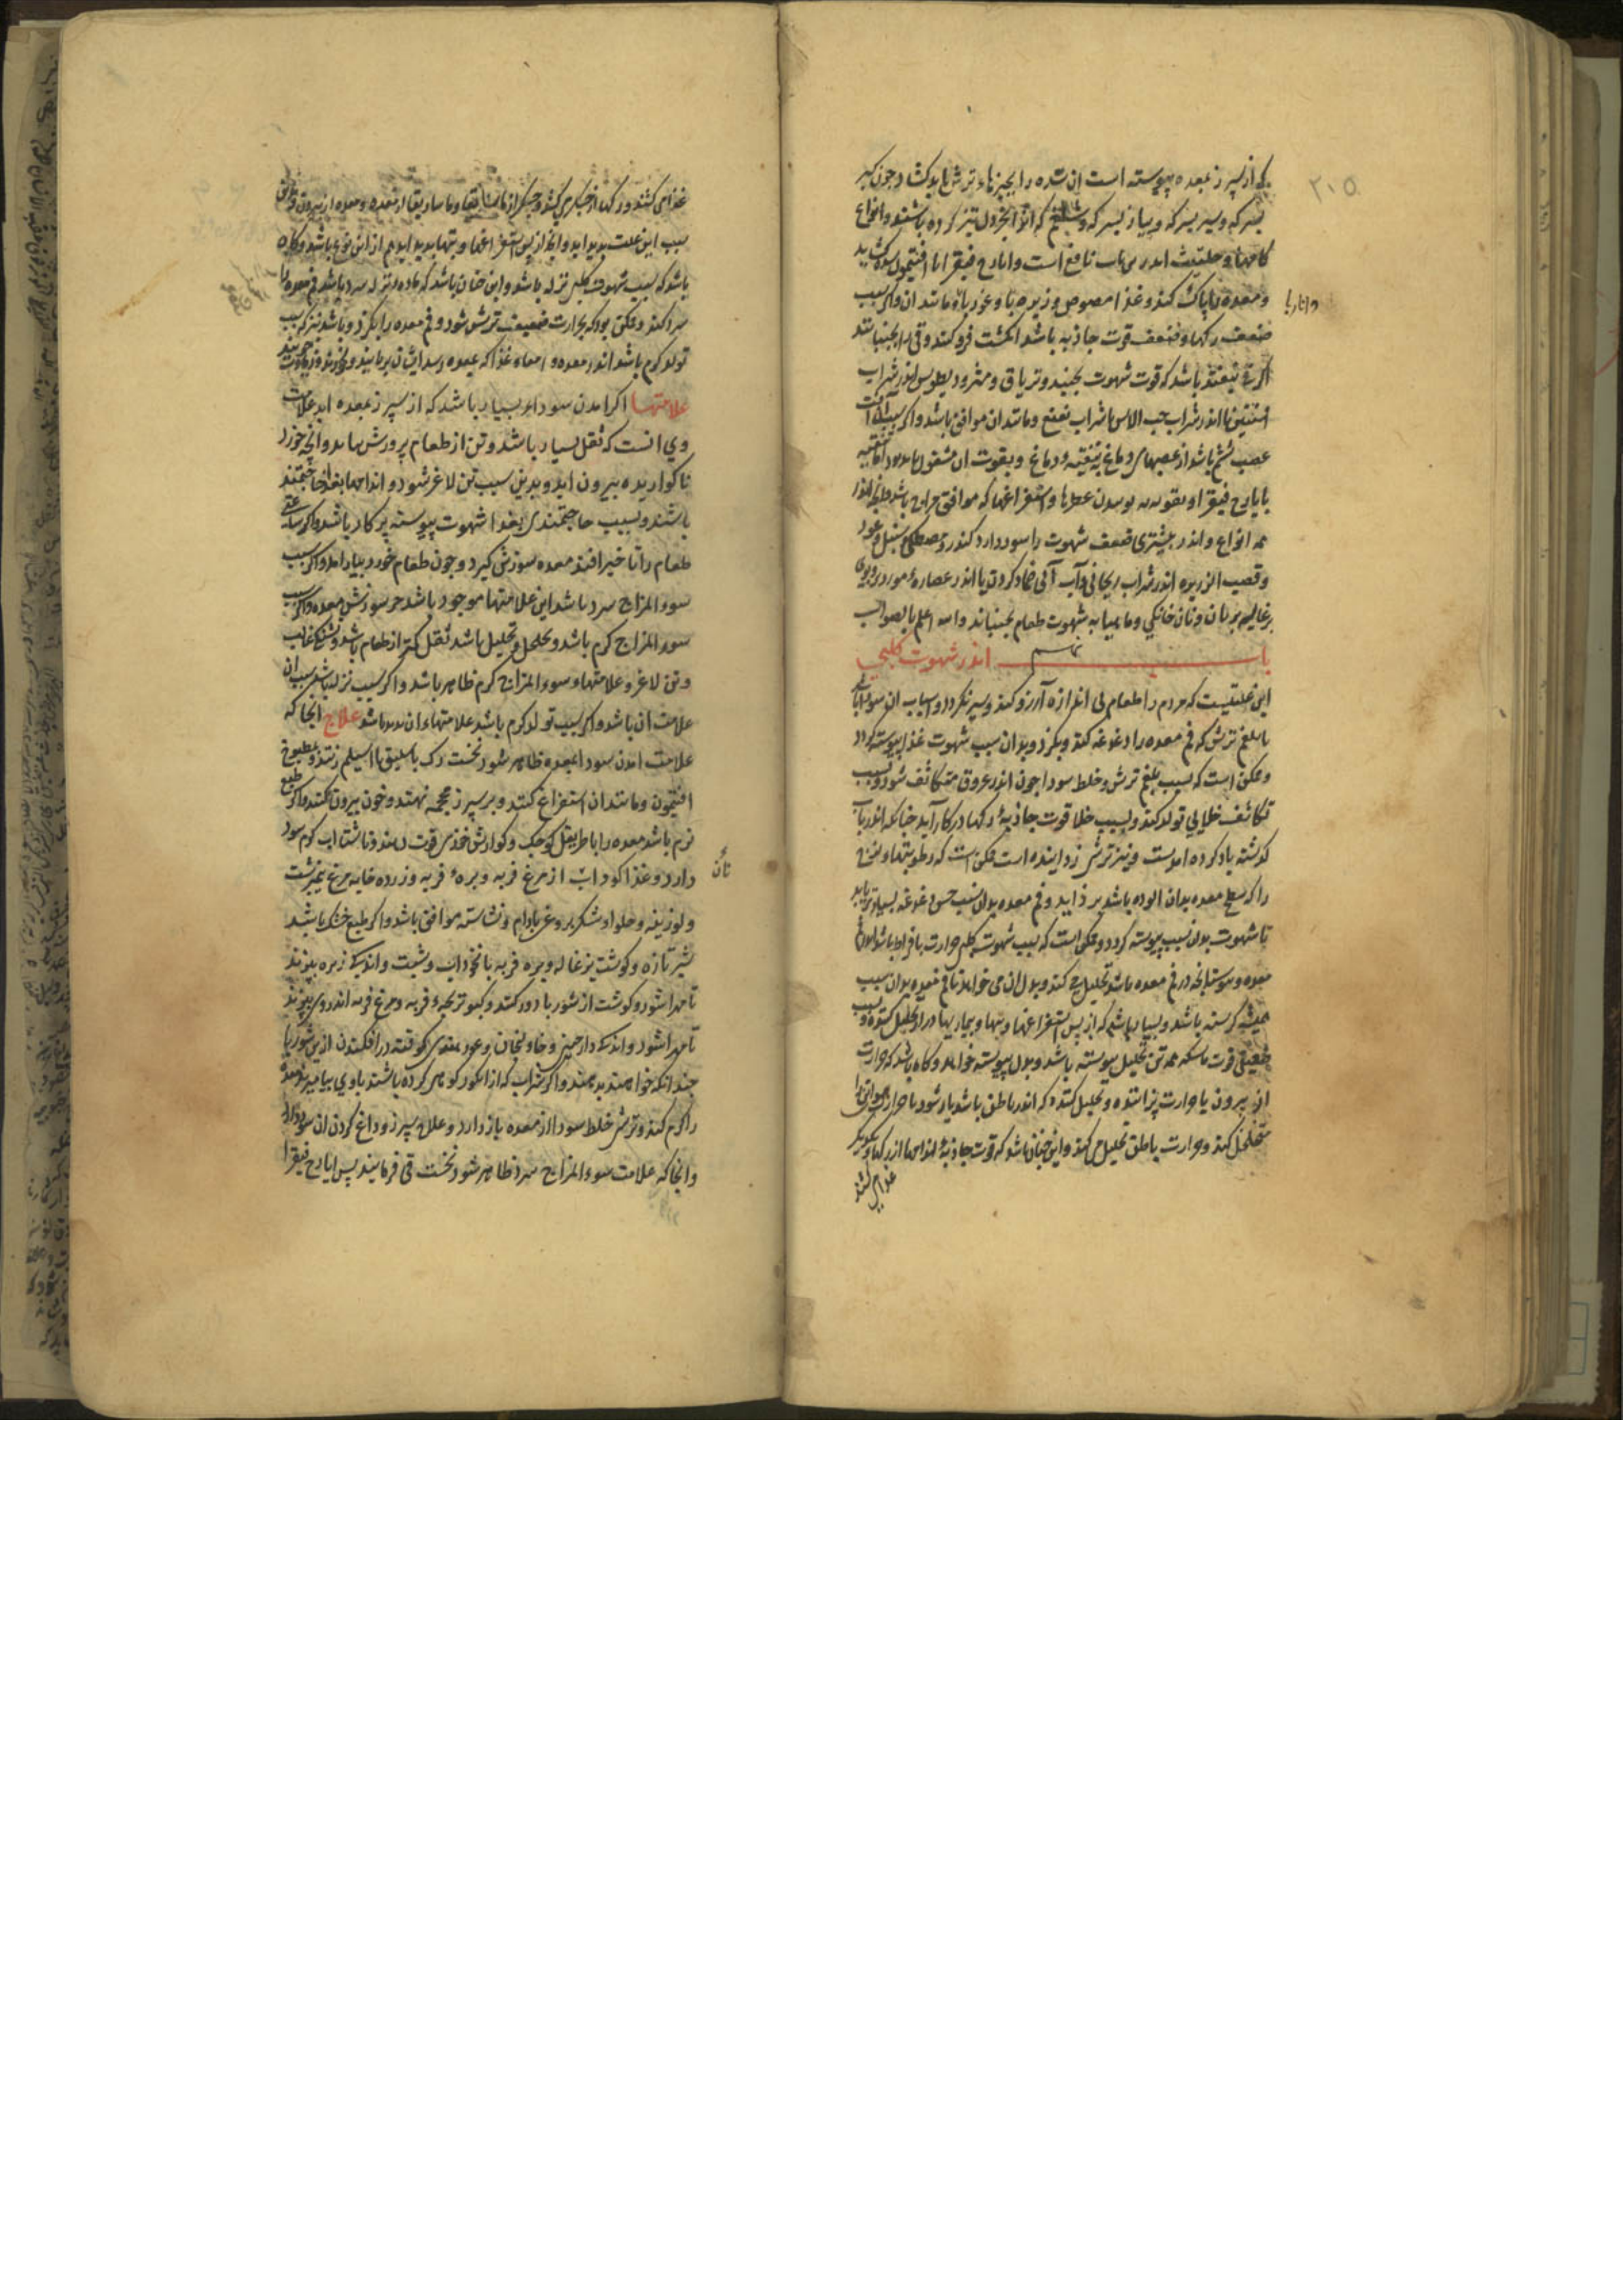 ۲۱۵
که از سپرز بمعده پیوسته است ان سده را بچیزهاء ترش باید کشاد چون کبر
بسرکه و سیر بسرکه و پیاز بسرکه و شلغم که انرا بخردل تیز کرده باشند و انواع
کامها و حلتیت اندرین باب نافع است و ایارج فیقرا با افتیمون
و معده را پاک کند و غذا مصوص و زیره با و غوربا و مانند ان و اکر سبب
واناربا
ضعف رکها و ضعف قوت جاذبه باشد انکشت فرو کنند و قی را بجنبانند
اکر قی نیفتد باشد که قوت شهوت بجنبد و تریاق و مثرودیطوس اندر شراب
افسنتین یا اندر شراب حب الاس یا شراب نعنع و مانند ان موافق باشد و اکر سبب آفت
عصب ششم باشد از عصبهای دماغ تنقیه دماغ و بقوت ان مشغول باید بود اما تنقیه
بایارج فیقرا و تقویت به بوییدن عطرها و استفراغها که موافق مزاج باشد
همه انواع و اندر بیشتری ضعف شهوت را سود دارد کندر و مصطکی و سنبل و عود
و قصب الزریره اندر شراب ریحانی و آب آبی ضماد کردن یا اندر عصاره مورد و بوی
بزغاله بریان و نان خانکی و ماهیابه شهوت طعام بجنباند والله اعلم بالصواب
باب نهم اندر شهوت کلبی
این علتیست که مردم را طعام بی اندازه آرزو کند و سیر نکردد و اسباب ان سودا باشد
یا بلغم ترش که فم معده را دغدغه کند و بکزد و بدان سبب شهوت غذا پیوسته کردد
و ممکن است که بسبب بلغم ترش و خلط سودا چون اندر عروق متکاثف شود و بسبب
تکاثف خلایی تولد کند و بسبب خلا قوت جاذبهٔ رکها در کار آید چنانکه اندر باب
کذشته یاد کرده امدست و نیز ترش زداینده است ممکن است که رطوبتها و لزجی
را که سطح معده بدان الوده باشد بزداید و فم معده بدان سبب حس دغدغه بسیارتر یابد
تا شهوت بدان سبب پیوسته کردد و ممکن است که سبب شهوت کلبی حرارت بافراط باشد اندر فم
معده و پیوسته انچه در فم معده باشد تحلیل می کند و بدل ان می خواهد تا فم معده بدان سبب
همیشه کرسنه باشد و بسیار باشد که از پس استفراغها و تبها و بیماریها دراز تحلیل کننده و بسبب
ضعیفی قوت ماسکه همه تن تحلیل پیوسته باشد و بدل پیوسته خواهد و کاه باشد که حرارت
از بیرون با حرارت پزاننده و تحلیل کننده که اندر باطن باشد یار شود تا حرارت هوا تن را
متخلخل کند و حرارت باطن تحلیل می کند و این چنان باشد که قوت جاذبهٔ اندامها از رکها و جکر
غذا می کشند
غذا می کشند و رکها از جکر می کشند و جکر از ماساریقا و ماساریقا از معده و معده از بیرون
سبب این علت پدید اید و انچ از پس استفراغها و تبها پدید اید هم از این نوع باشد و کاه
باشد که سبب شهوت کلبی نزله باشد و این چنان باشد که ماده نزله سرد باشد فم معده را
سرد کند و ممکن بود که بحرارت ضعیف ترش شود و فم معده را بکزد و باشد نیز که سبب
تولد کرم باشد اندر معده و امعاء غذا که بمعده رسد ایشان بربایند و بخورند
علامتها اکر امدن سودا بسیار باشد که از سپرز بمعده اید علامت
وی انست که ثقل بسیار باشد و تن از طعام پرورش نیابد و انچه خورد
ناکواریده بیرون اید و بدین سبب تن لاغر شود و اندامها بغذا حاجتمند
باشند و بسبب حاجتمندی بغذا شهوت پیوسته بر کار باشد و اکر ساعتی
طعام را تاخیر افتد معده سوزش کیرد و چون طعام خورد بیارامد و اکر سبب
سوء المزاج سرد باشد این علامتها موجود باشد جز سوزش معده و اکر سبب
سوء المزاج کرم باشد و تخلخل و تحلیل باشد ثقل کمتر از طعام باشد و تشنکی غالب
و تن لاغر و علامتهاء سوء المزاج کرم ظاهر باشد و اکر سبب نزله باشد سبب ان
علامت ان باشد و اکر سبب تولد کرم باشد علامتهاء ان پدید باشد علاج انجا که
علامت امدن سودا بمعده ظاهر شود نخست رک باسلیق یا اسیلم زنند و بمطبوخ
افتیمون و مانند ان استفراغ کنند و بر سپرز محجمه نهند و خون بیرون نکنند و اکر طبع
نرم باشد معده را باطریفل کوچک و کوارش خوزی قوت دهند و ناشتا اب کرم سود
دارد و غذا کوداب از مرغ فربه و برهٔ فربه و زرده خایه مرغ نیمبرشت
نان
و لوزینه و حلواء شکر بروغن بادام و نشاسته موافق باشد و اکر طبع خشک باشد
شیر تازه و کوشت بزغاله و بره فربه با نخوداب و شبت و اندکی زیره بپزند
تا مهرا شود و کوشت از شوربا دور کنند و کبوتر بچهٔ فربه و مرغ فربه اندر وی بپزند
تا مهرا شود و اندکی دارچینی و خاولنجان و عود هندی کوفته در افکنند و ازین شوربا
چندانکه خواهند بدهند و اکر شراب که از انکور کوهی کرده باشند با وی بیامیزند معده
را کرم کند و ترشی خلط سودا از معده باز دارد و علل سپرز و داغ کردن ان سود دارد
و انجا که علامت سوء المزاج سرد ظاهر شود نخست قی فرمایند پس ایارج فیقرا